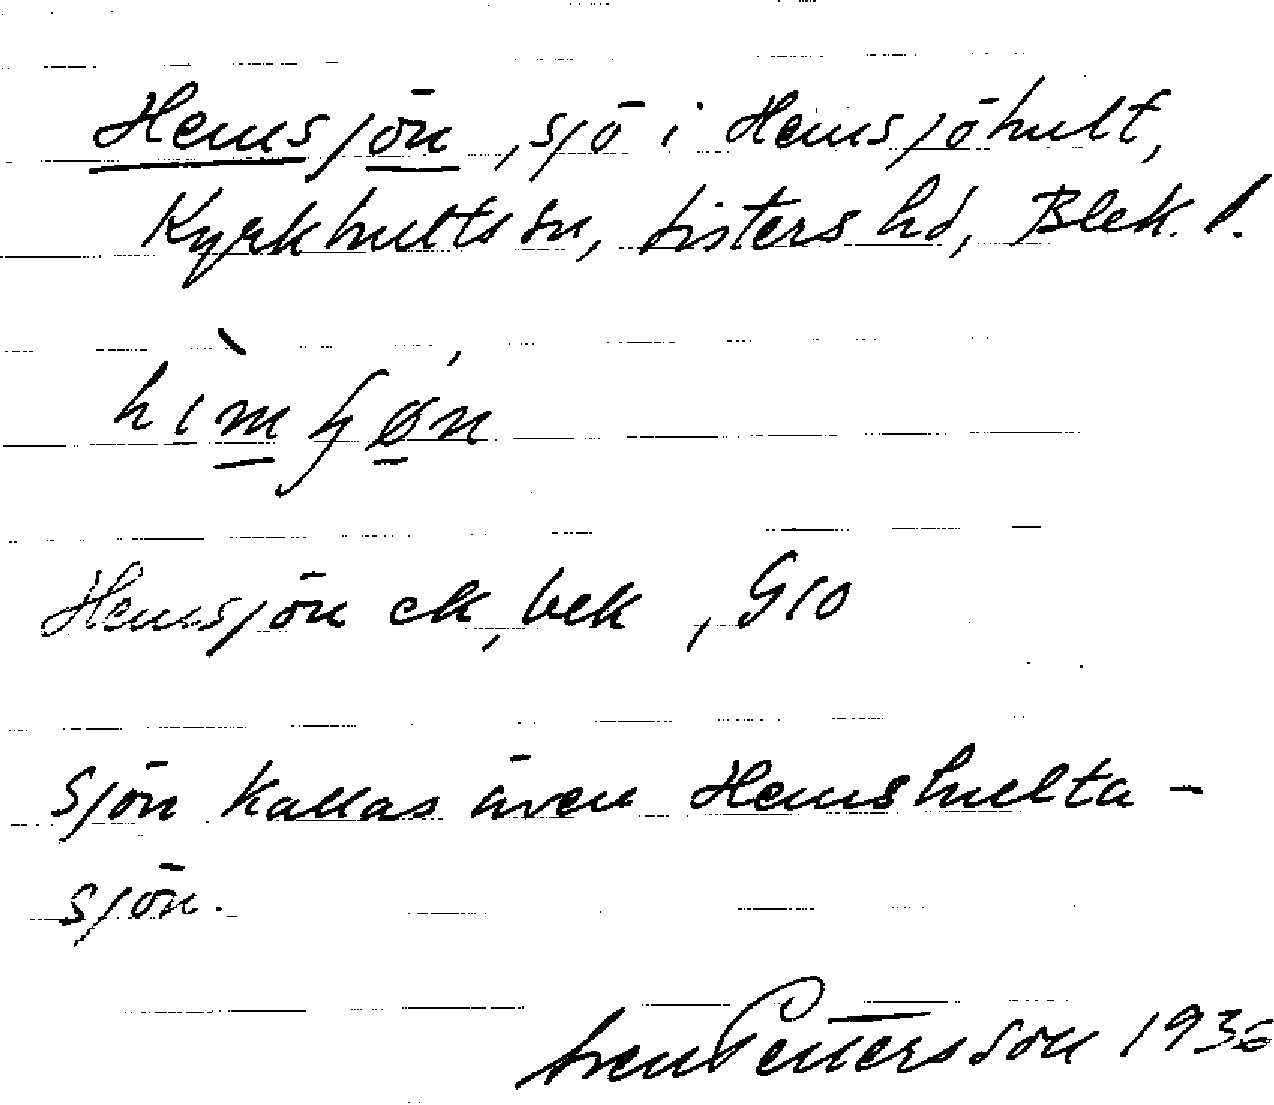 Hemsjön, sjö i Hemsjöhult,
Kyrkhults sn, Listers hd, Blek. l.
Hemsjön ek, bek, G10
Sjön kallas även Hemshulta-
sjön.
Sven Pettersson 1936